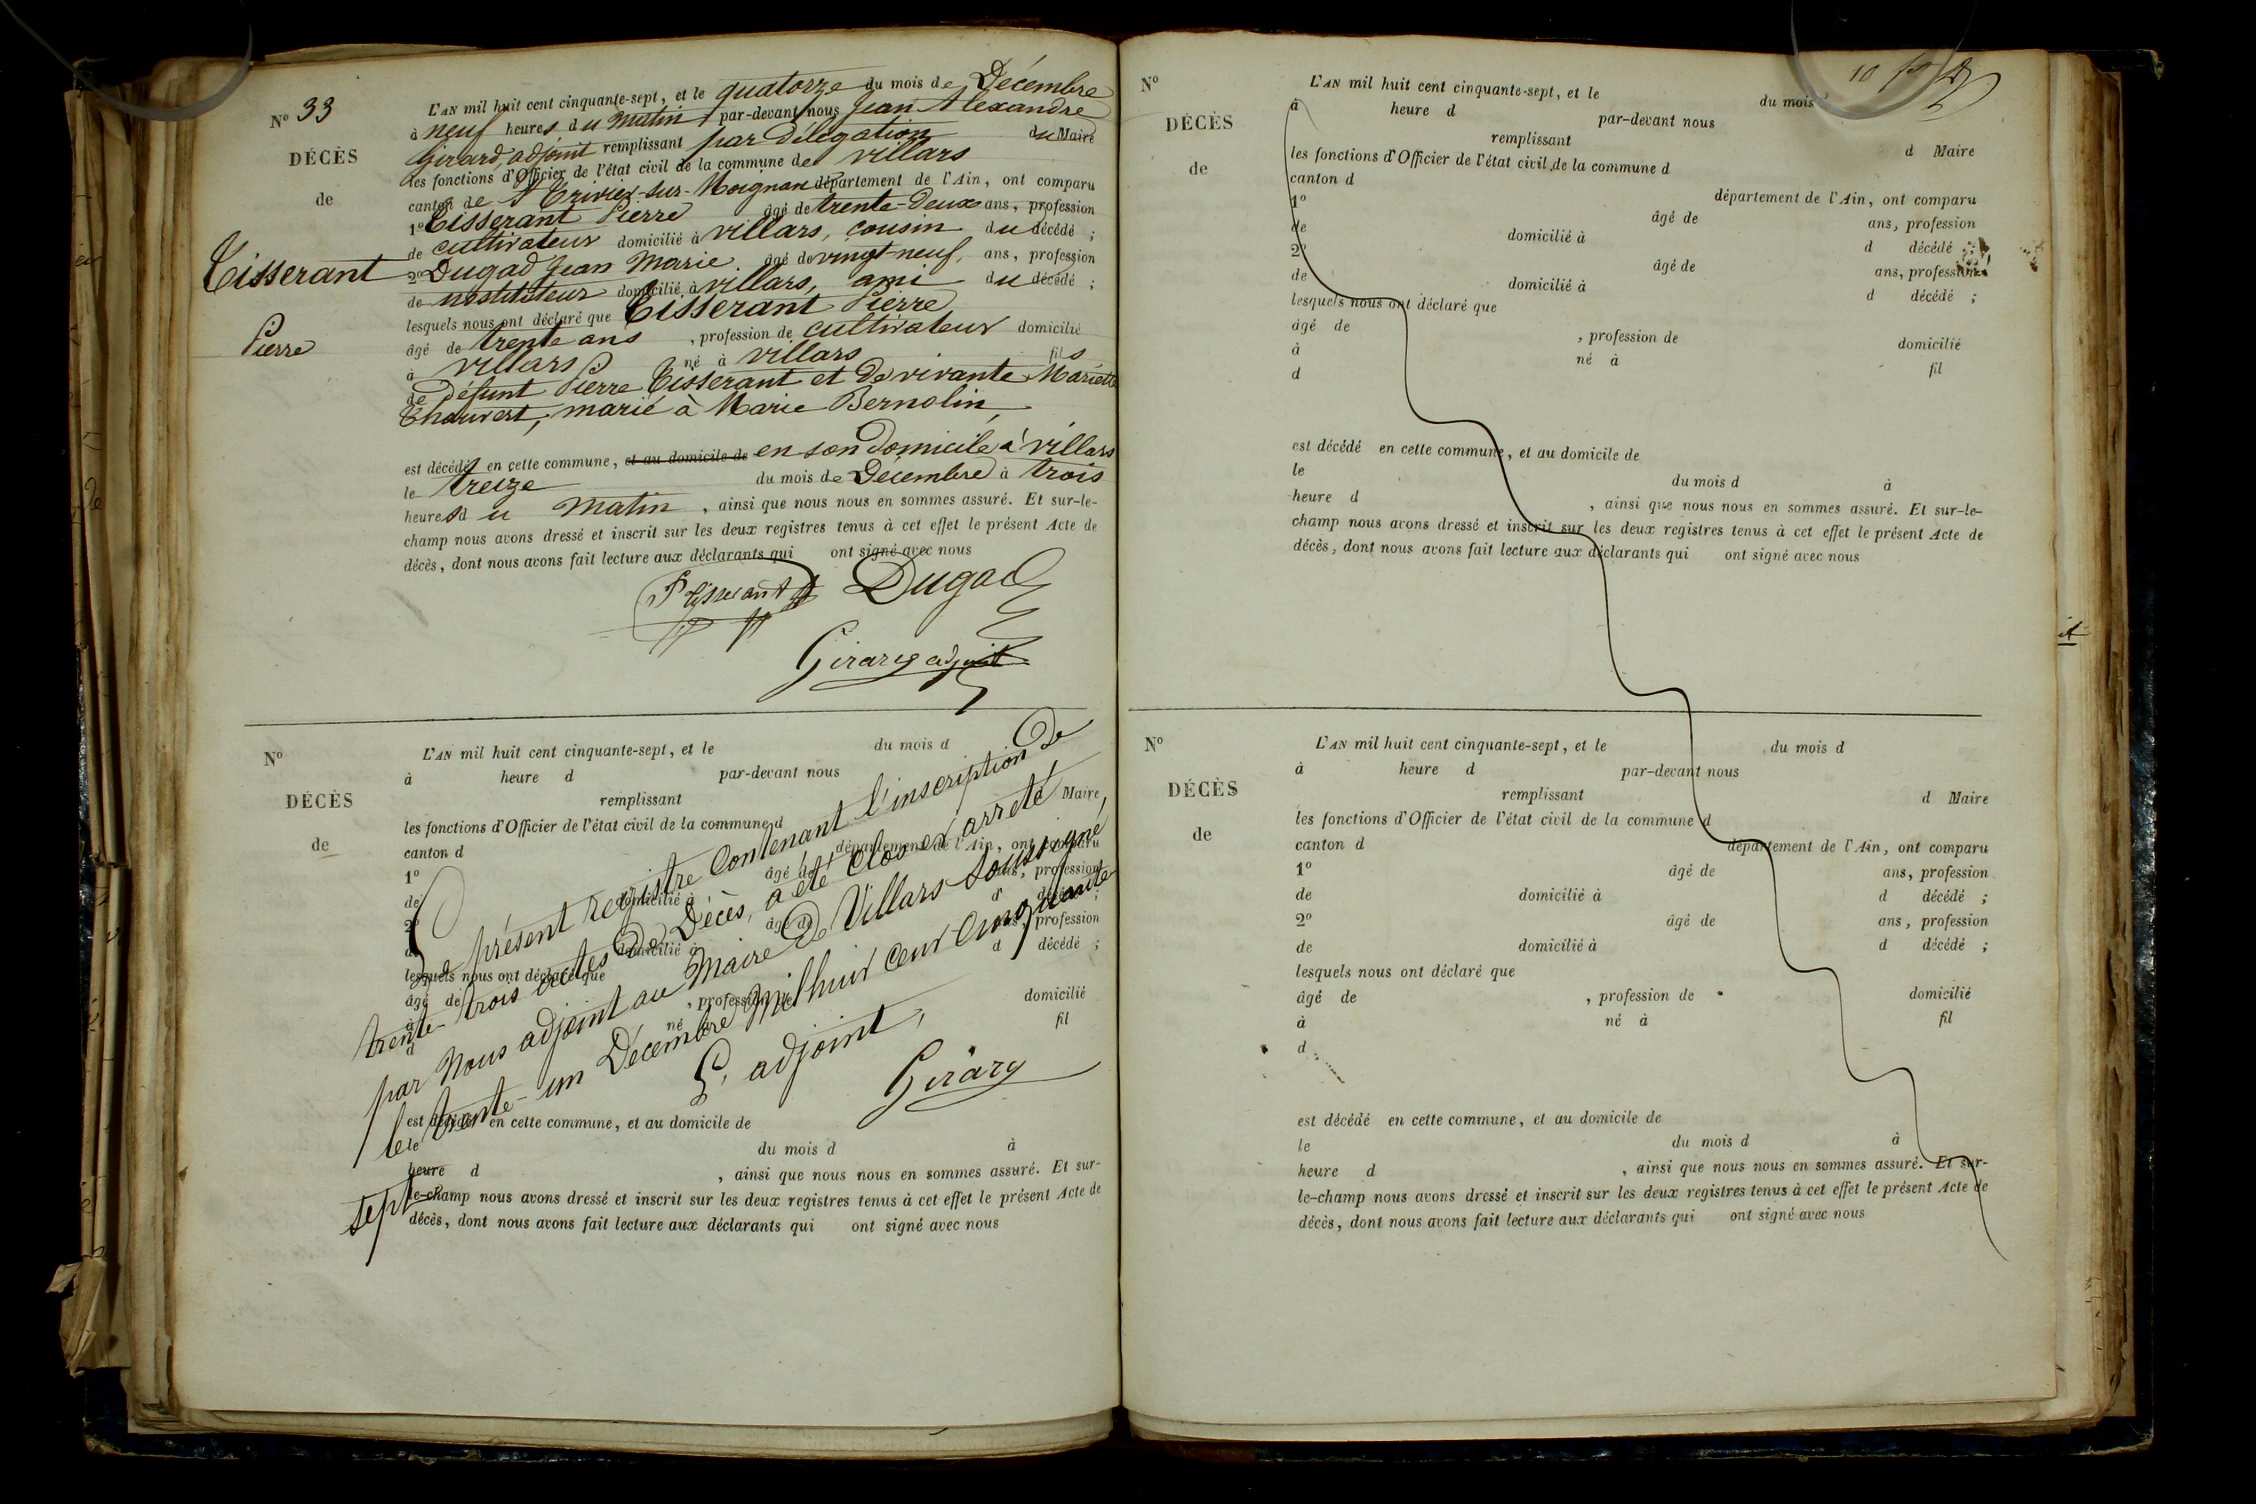 N° 33
DÉCÈS
de
Tisserant
Pierre
L'AN mil huit cent cinquante-sept, et le quatorze du mois de Décembre
à neuf heures du matin par-devant nous Jean Alexandre
Girard, adjoint remplissant par délégation du Maire
les fonctions d'Officier de l'état civil de la commune de villars
canton de St Trivier-sur-Moignan département de l'Ain, ont comparu
1° Tisserant Pierre âgé de trente-deux ans, profession
de cultivateur domicilié à villars, cousin du décédé ;
2° Dugad Jean Marie âgé de vingt-neuf, ans, profession
de instituteur domicilié à villars, ami du décédé ;
lesquels nous ont déclaré que Tisserant Pierre
âgé de trente ans , profession de cultivateur domicilié
à villars né à villars fils
de défunt Pierre Tisserant et de vivante Mariette
Chauvert, marié à Marie Bernolin,
est décédé en cette commune, et au domicile de en son domicile à villars
le treize du mois de Decembre à trois
heures du matin , ainsi que nous nous en sommes assuré. Et sur-le-
champ nous avons dressé et inscrit sur les deux registres tenus à cet effet le présent Acte de
décès, dont nous avons fait lecture aux déclarants qui ont signé avec nous
P Tisserant Dugad
Girard adjoint
N°
DÉCÈS
de
L'AN mil huit cent cinquante-sept, et le du mois d
à heure d par-devant nous
remplissant Maire
les fonctions d'Officier de l'état civil de la commune d
canton d département de l'Ain, ont comparu
1° âgé de ans, profession
de domicilié à d décédé ;
2° âgé de ans, profession
de domicilié à d décédé ;
lesquels nous ont déclaré que
âgé de , profession de domicilié
à né à fil
d
Le présent registre contenant l'inscription de
trente-trois actes de Décès, a été clos et arrêté
par Nous adjoint au Maire de Villars soussigné,
le trente-un Décembre mil huit cent cinquante
sept
L'adjoint,
Girard
est décédé en cette commune, et au domicile de
le du mois d à
heure d , ainsi que nous nous en sommes assuré. Et sur-
le-champ nous avons dressé et inscrit sur les deux registres tenus à cet effet le présent Acte de
décès, dont nous avons fait lecture aux déclarants qui ont signé avec nous
10
N°
DÉCÈS
de
L'AN mil huit cent cinquante-sept, et le du mois
à heure d par-devant nous
remplissant d Maire
les fonctions d'Officier de l'état civil de la commune d
canton d département de l'Ain, ont comparu
1° âgé de ans, profession
de domicilié à d décédé ;
2° âgé de ans, profession
de domicilié à d décédé ;
lesquels nous ont déclaré que
âgé de , profession de domicilié
à né à fil
d
est décédé en cette commune, et au domicile de
le du mois d à
heure d , ainsi que nous nous en sommes assuré. Et sur-le-
champ nous avons dressé et inscrit sur les deux registres tenus à cet effet le présent Acte de
décès, dont nous avons fait lecture aux déclarants qui ont signé avec nous
N°
DÉCÈS
de
L'AN mil huit cent cinquante-sept, et le du mois d
à heure d par-devant nous
remplissant d Maire
les fonctions d'Officier de l'état civil de la commune d
canton d département de l'Ain, ont comparu
1° âgé de ans, profession
de domicilié à d décédé ;
2° âgé de ans, profession
de domicilié à d décédé ;
lesquels nous ont déclaré que
âgé de , profession de domicilié
à né à fil
d
est décédé en cette commune, et au domicile de
le du mois d à
heure d , ainsi que nous nous en sommes assuré. Et sur-
le-champ nous avons dressé et inscrit sur les deux registres tenus à cet effet le présent Acte de
décès, dont nous avons fait lecture aux déclarants qui ont signé avec nous